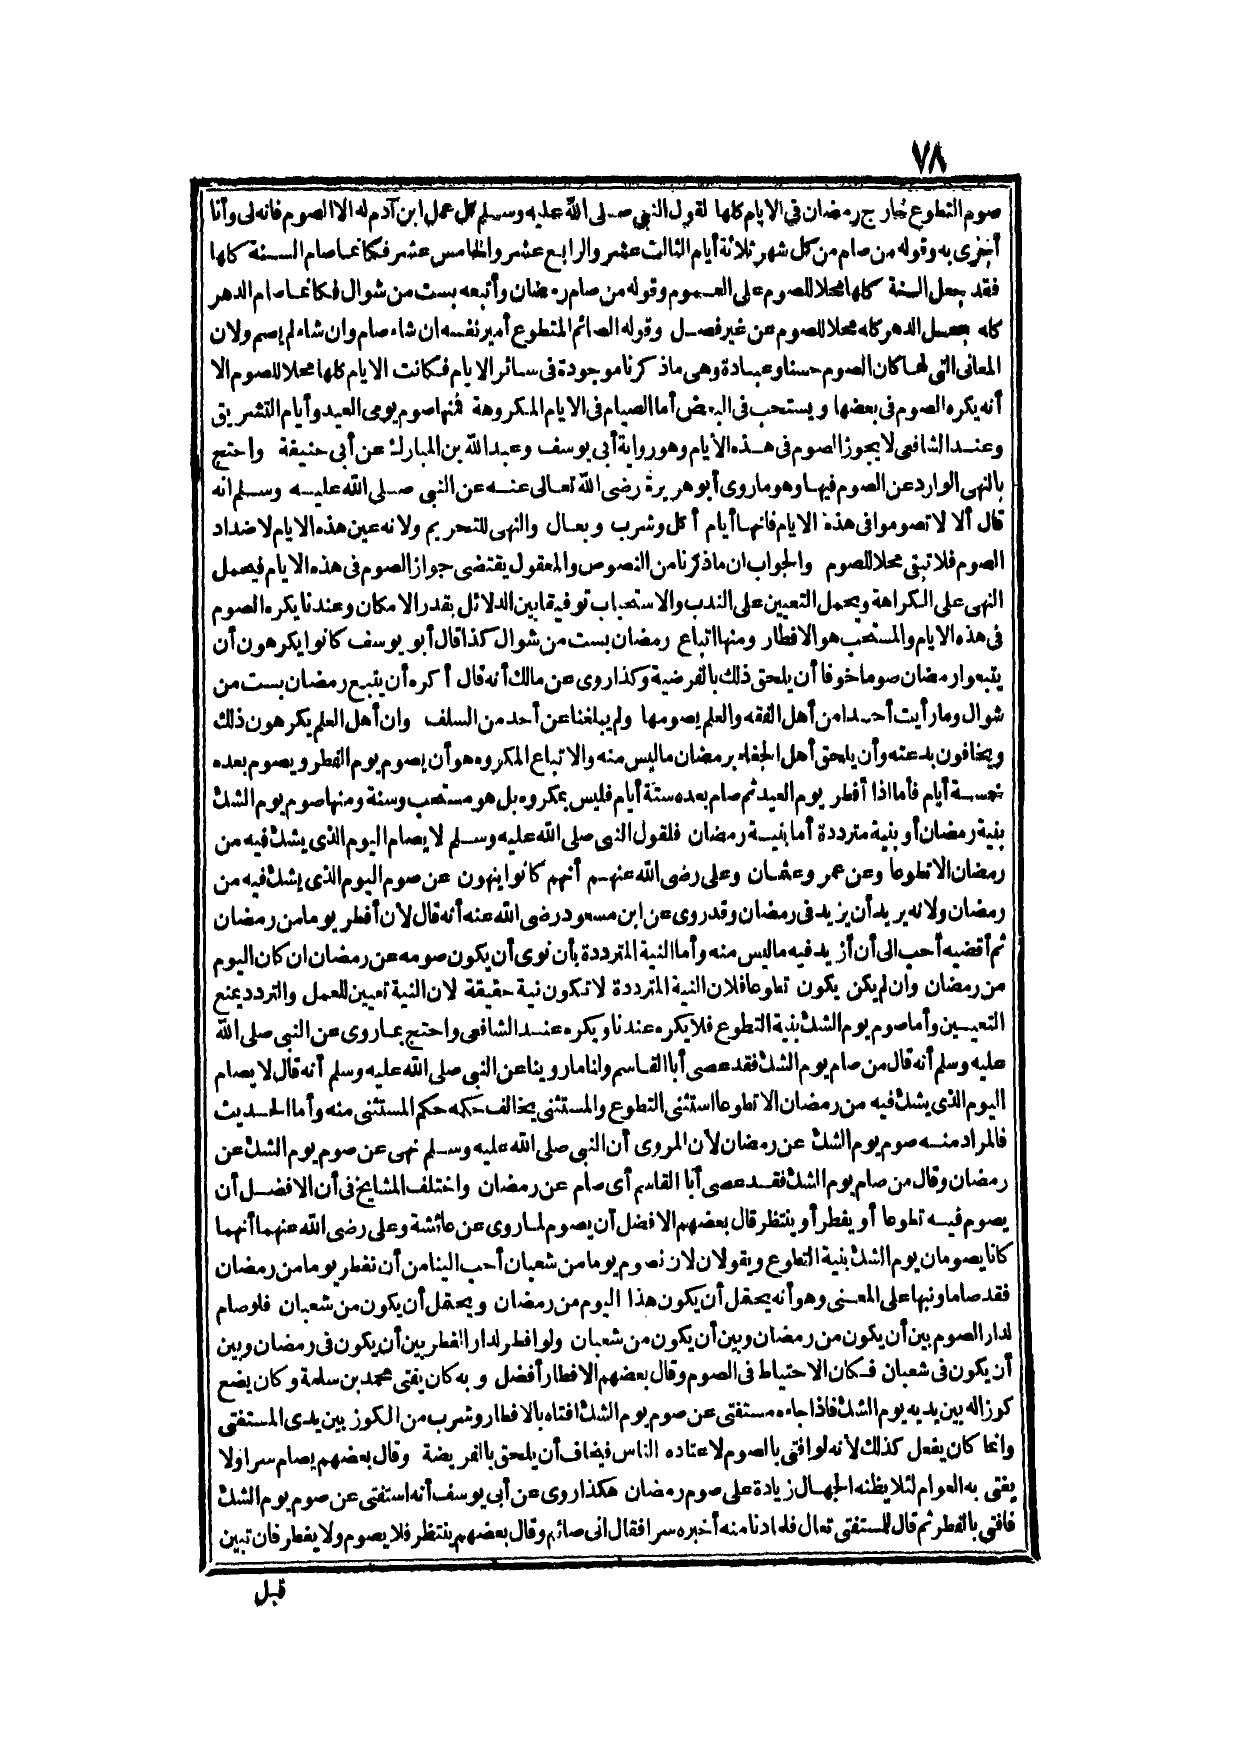 ٧٨
صوم التطوع خارج رمضان في الايام كلها لقول النبي صلى الله عليه وسلم كل عمل ابن آدم له الا الصوم فانه لى وأنا
أجزى به وقوله من صام من كل شهر ثلاثة أيام الثالث عشر والرابع عشر والخامس عشر فكانما صام السنة كلها
فقد جعل السنة كلها محلا للصوم على العموم وقوله من صام رمضان وأتبعه بست من شوال فكانما صام الدهر
كله جعل الدهر كله محلا للصوم عن غير فصل وقوله الصائم المتطوع أمير نفسه ان شاء صام وان شاء لم يصم ولان
المعانى التي لها كان الصوم حسنا وعبادة وهى ماذكرنا موجودة فى سائر الايام فكانت الايام كلها محلا للصوم الا
أنه يكره الصوم فى بعضها ويستحب فى البعض أما الصيام فى الايام المكروهة فمنها صوم يومى العيد وأيام التشريق
وعند الشافعى لا يجوز الصوم فى هذه الأيام وهو رواية أبى يوسف وعبد الله بن المبارك عن أبى حنيفة واحتج
بالنهى الوارد عن الصوم فيها وهو ما روى أبو هريرة رضى الله تعالى عنه عن النبى صلى الله عليه وسلم انه
قال ألا لا تصوموا فى هذه الايام فانها أيام أكل وشرب وبعال والنهى للتحريم ولانه عين هذه الايام لاضداد
الصوم فلا تبقى محلا للصوم والجواب ان ماذكرنا من النصوص والمعقول يقتضى جواز الصوم فى هذه الايام فيحمل
النهى على الكراهة ويحمل التعيين على الندب والاستحباب توفيقا بين الدلائل بقدر الامكان وعندنا يكره الصوم
فى هذه الايام والمستحب هو الافطار ومنها اتباع رمضان بست من شوال كذا قال أبو يوسف كانوا يكرهون أن
يتبعوا رمضان صوما خوفا أن يلحق ذلك بالفرضية وكذا روى عن مالك أنه قال أكره أن يتبع رمضان بست من
شوال وما رأيت أحدا من أهل الفقه والعلم يصومها ولم يبلغنا عن أحد من السلف وان أهل العلم يكرهون ذلك
ويخافون بدعته وأن يلحق أهل الجفاء برمضان ما ليس منه والاتباع المكروه هو أن يصوم يوم الفطر ويصوم بعده
خمسة أيام فأما اذا أفطر يوم العيد ثم صام بعده ستة أيام فليس بمكروه بل هو مستحب وسنة ومنها صوم يوم الشك
بنية رمضان أو بنية مترددة أما بنية رمضان فلقول النبى صلى الله عليه وسلم لا يصام اليوم الذى يشك فيه من
رمضان الا تطوعا وعن عمر وعثمان وعلى رضى الله عنهم أنهم كانوا ينهون عن صوم اليوم الذى يشك فيه من
رمضان ولانه يريد أن يزيد فى رمضان وقد روى عن ابن مسعود رضى الله عنه أنه قال لأن أفطر يوما من رمضان
ثم أقضيه أحب الى أن أزيد فيه ما ليس منه وأما النية المترددة بأن نوى أن يكون صومه عن رمضان ان كان اليوم
من رمضان وان لم يكن يكون تطوعا فلان النية المترددة لا تكون نية حقيقة لان النية تعيين للعمل والتردد يمنع
التعيين وأما صوم يوم الشك بنية التطوع فلا يكره عندنا ويكره عند الشافعى واحتج بما روى عن النبى صلى الله
عليه وسلم أنه قال من صام يوم الشك فقد عصى أبا القاسم ولنا ما روينا عن النبى صلى الله عليه وسلم أنه قال لا يصام
اليوم الذى يشك فيه من رمضان الا تطوعا استثنى التطوع والمستثنى يخالف حكمه حكم المستثنى منه وأما الحديث
فالمراد منه صوم يوم الشك عن رمضان لأن المروى أن النبى صلى الله عليه وسلم نهى عن صوم يوم الشك عن
رمضان وقال من صام يوم الشك فقد عصى أبا القاسم أى صام عن رمضان واختلف المشايخ فى أن الافضل أن
يصوم فيه تطوعا أو يفطر أو ينتظر قال بعضهم الافضل أن يصوم لما روى عن عائشة وعلى رضى الله عنهما أنهما
كانا يصومان يوم الشك بنية التطوع ويقولان لان نصوم يوما من شعبان أحب الينا من أن نفطر يوما من رمضان
فقد صاما ونبها على المعنى وهو أنه يحتمل أن يكون هذا اليوم من رمضان ويحتمل أن يكون من شعبان فلو صام
لدار الصوم بين أن يكون من رمضان وبين أن يكون من شعبان ولو افطر لدار الفطر بين أن يكون فى رمضان وبين
أن يكون فى شعبان فكان الاحتياط فى الصوم وقال بعضهم الافطار أفضل وبه كان يفتى محمد بن سلمة وكان يضع
كوزا له بين يديه يوم الشك فاذا جاءه مستفتى عن صوم يوم الشك افتاه بالافطار وشرب من الكوز بين يدى المستفتى
وانما كان يفعل كذلك لأنه لو افتى بالصوم لاعتاده الناس فيخاف أن يلحق بالفريضة وقال بعضهم يصام سرا ولا
يفتى به العوام لئلا يظنه الجهال زيادة على صوم رمضان هكذا روى عن أبى يوسف أنه استفتى عن صوم يوم الشك
فافتى بالفطر ثم قال للمستفتى تعال فلما دنا منه أخبره سرا فقال انى صائم وقال بعضهم ينتظر فلا يصوم ولا يفطر فان تبين
قبل